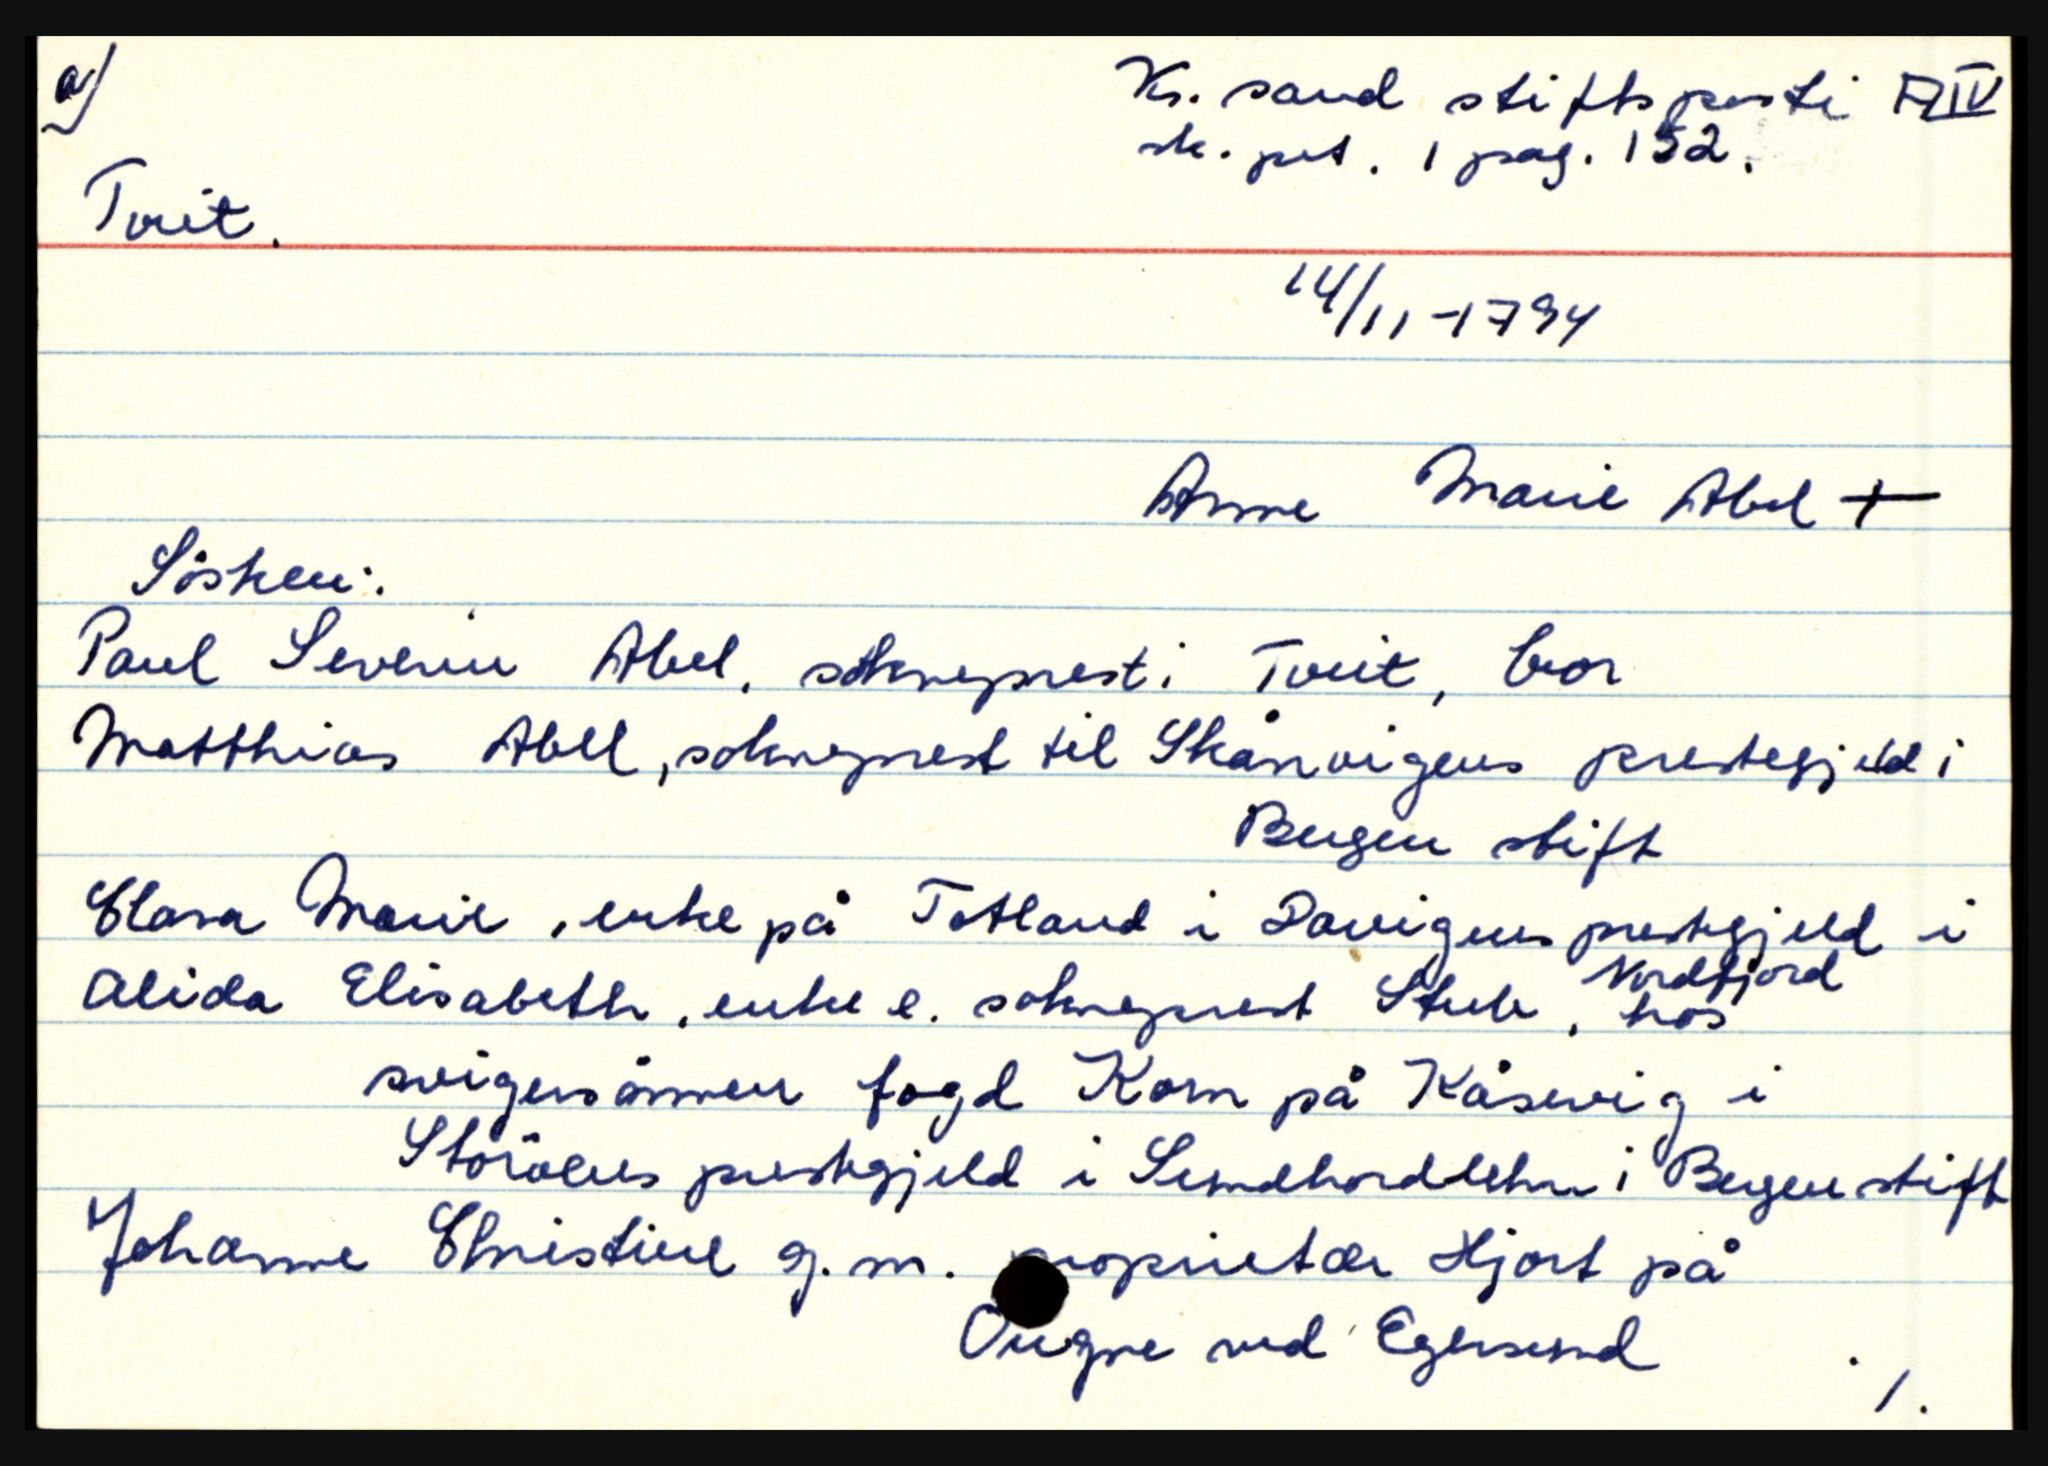 a)
Kr.sand stiftsprosti F IV
sk. prt. 1 pag. 152.
Tveit.
14/11-1794
Anne Marie Abel +
Sösken:
Paul Severin Abel, sokneprest i Tveit, bor
Matthias Abell, sokneprest til Skånvigens prestegjeld i
Bergen stift
Clara Marie, enke på Totland i Davigens prestegjeld i
Nordfjord
Alida Elisabeth, enke e. sokneprest Stub, hos
svigersönnen fogd Korn på Kåsevig i
Storöens prestegjeld i Sundhordlehn i Bergen stift
Johanne Christine g.m. proprietær Hjort på
Ougne ved Egersund
1.